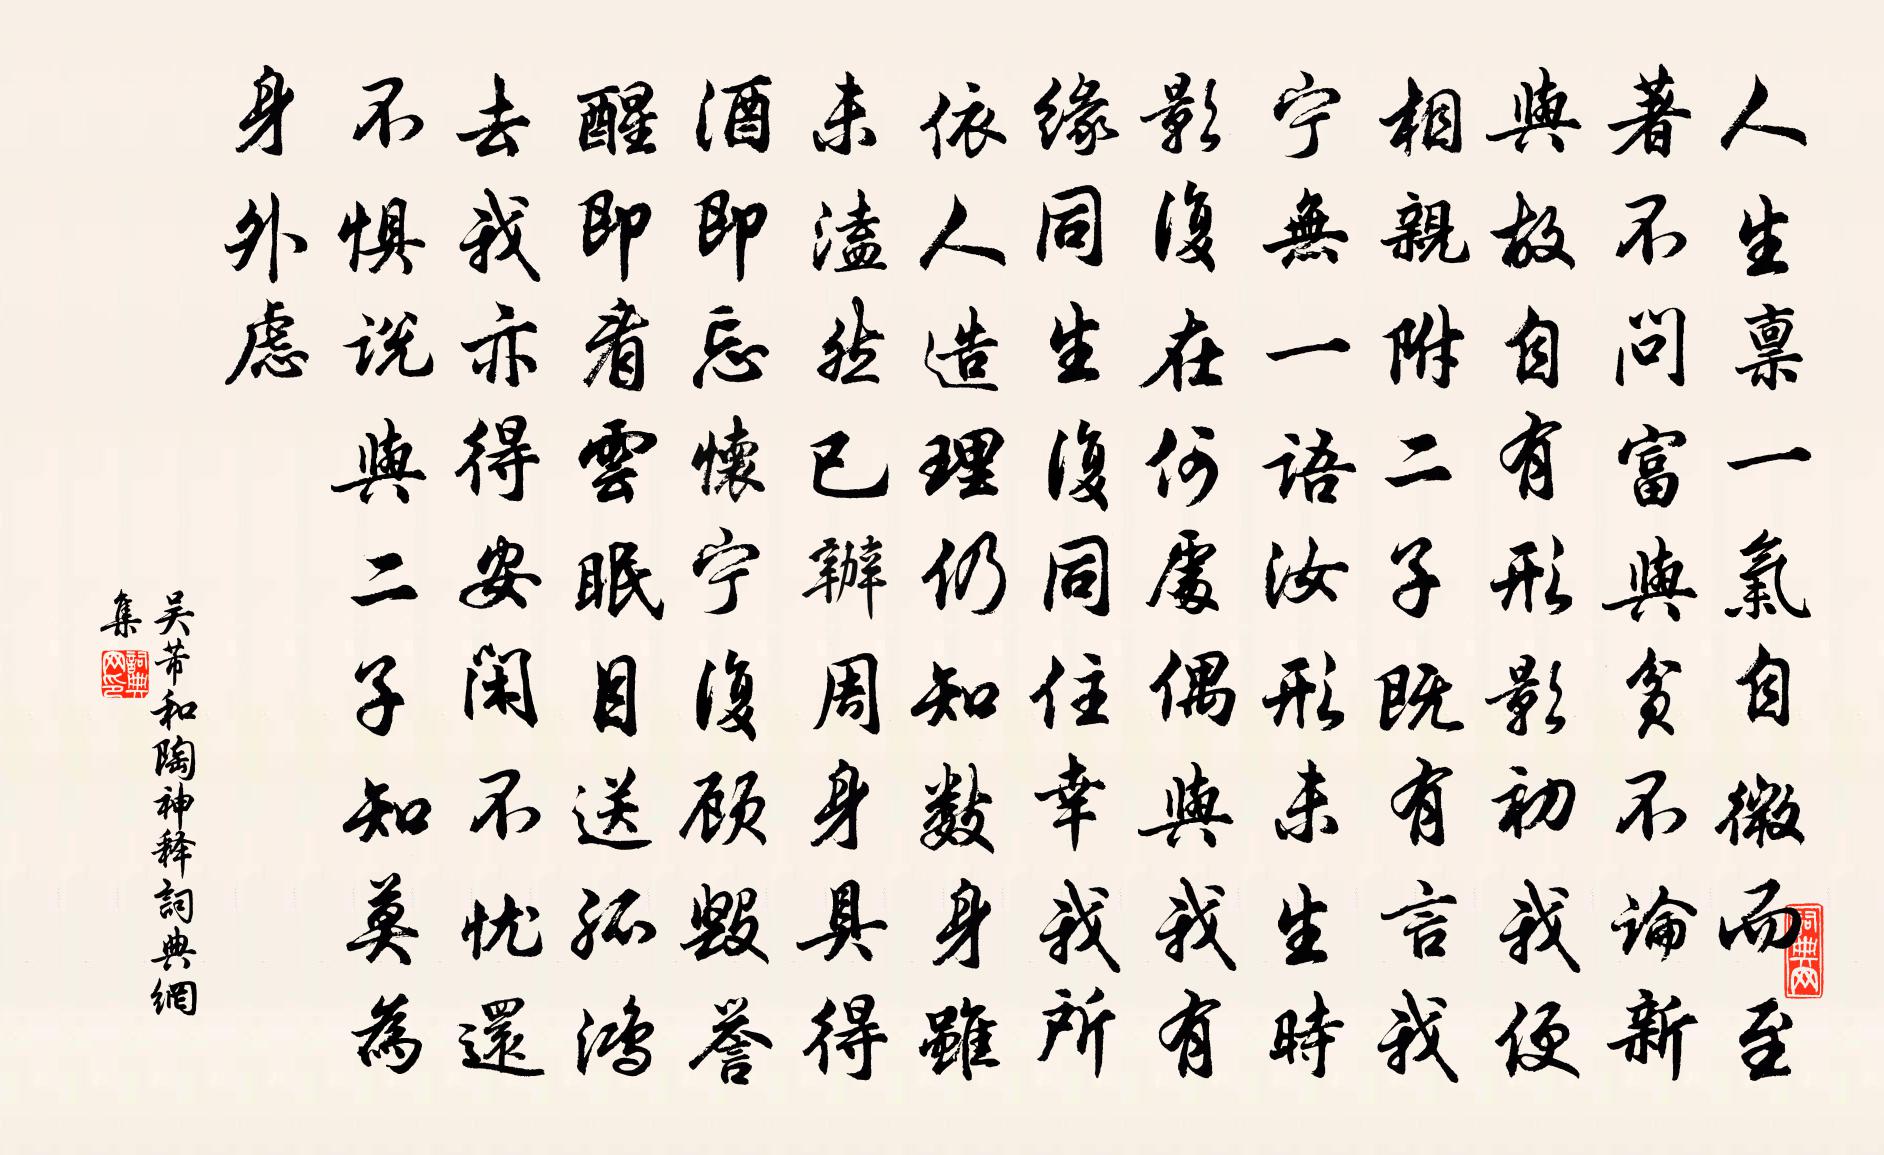 人生禀一氣自微而至
著不問富與貧不論新
與故自有形影初我便
相親附二子既有言我
宁無一語汝形未生時
影復在何處偶與我有
緣同生復同住幸我所
依人造理仍知數身雖
未溘然已辦周身具得
酒即忘懷宁復顾毀譽
醒即看雲眠目送孤鴻
去我亦得安閑不忧還
不惧説與二子知莫為
身外慮
吴芾和陶神释詞典網
集
詞典网印
詞典网